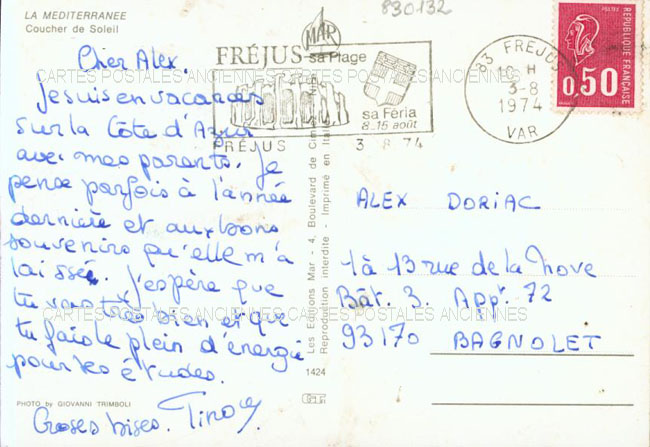 LA MEDITERRANEE
Coucher de Soleil
830132
MAR
FRÉJUS sa Plage
sa Féria
8-15 août
FRÉJUS 3 8 74
83 FREJUS
10 H
3-8
1974
VAR
POSTES
0,50
REPUBLIQUE FRANÇAISE
CARTES POSTALES ANCIENNES CARTES POSTALES ANCIENNES
Cher Alex.
Je suis en vacances
sur la Côte d'Azur
avec mes parents. Je
pense parfois à l'année
dernière et aux bons
souvenirs qu'elle m'a
laissée. J'espère que
tu vas très bien et que
tu fais le plein d'energie
pour tes études.
Grosses bises.
ALEX DORIAC
1à 13 rue de la Nove
Bât. 3. Appt. 72
93170 BAGNOLET
CARTES POSTALES ANCIENNES CARTES POSTALES ANCIENNES
Les Editions Mar - 4, Boulevard de
Reproduction interdite - Imprimé en
1424
PHOTO by GIOVANNI TRIMBOLI